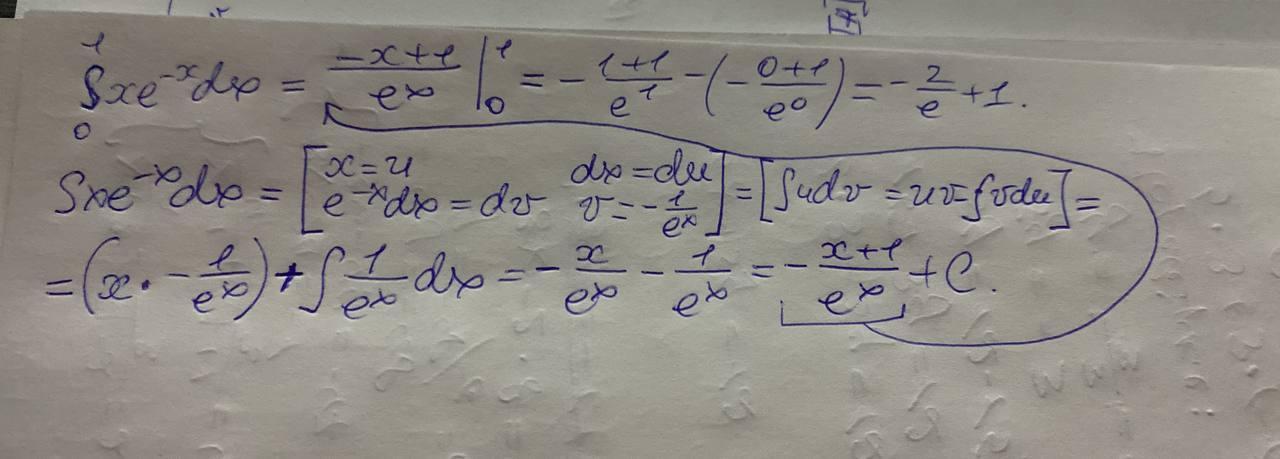 ∫₀¹ xe⁻ˣdx = (-x+1)/eˣ |₀¹ = -(1+1)/e¹ - (-(0+1)/e⁰) = -2/e + 1.
∫xe⁻ˣdx = [x=u dx=du e⁻ˣdx=dv v=-1/eˣ] = [∫udv = uv-∫vdu] =
= (x·-1/eˣ) + ∫1/eˣ dx = -x/eˣ - 1/eˣ = -(x+1)/eˣ + C.